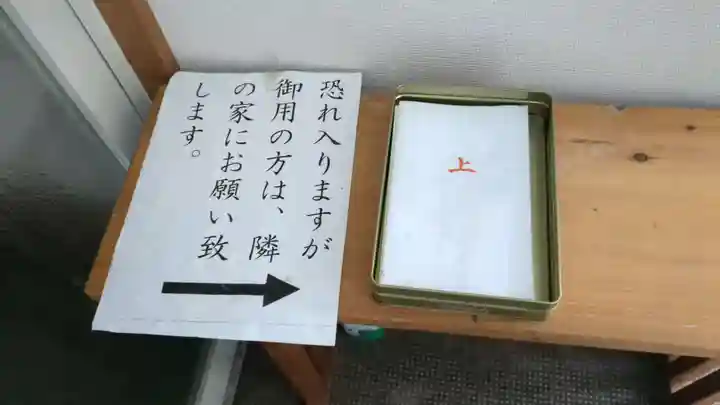 恐れ入りますが
御用の方は、隣
の家にお願い致
します。
上